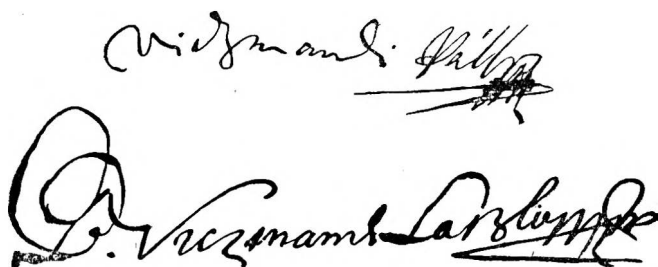 Viczmandi Páll
G. Viczmandi László